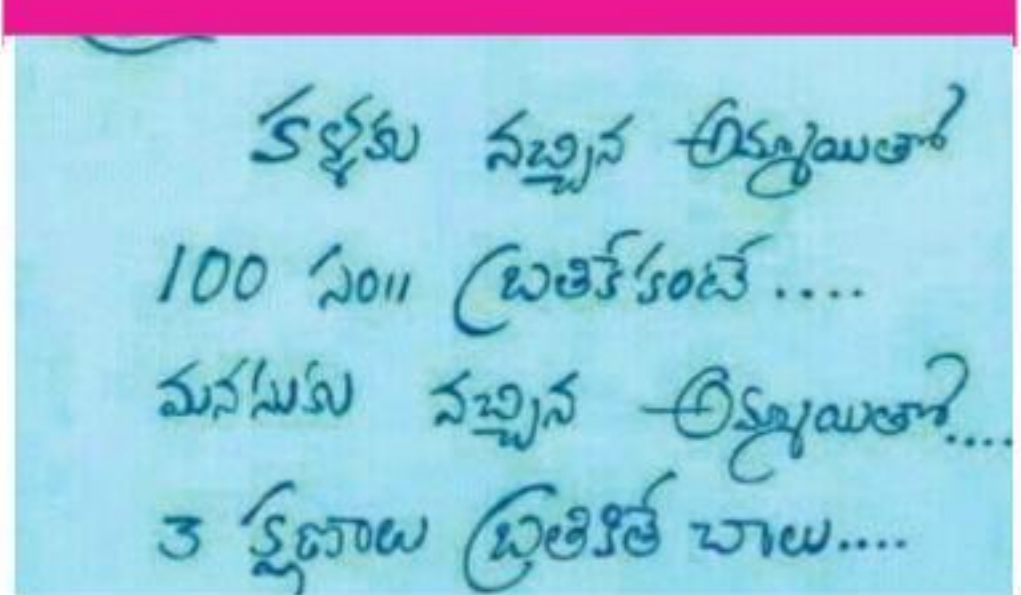 కళ్ళకు నచ్చిన అమ్మాయితో
100 సం॥ బ్రతికేకంటే ....
మనసుకు నచ్చిన అమ్మాయితో....
3 క్షణాలు బ్రతికితే చాలు....